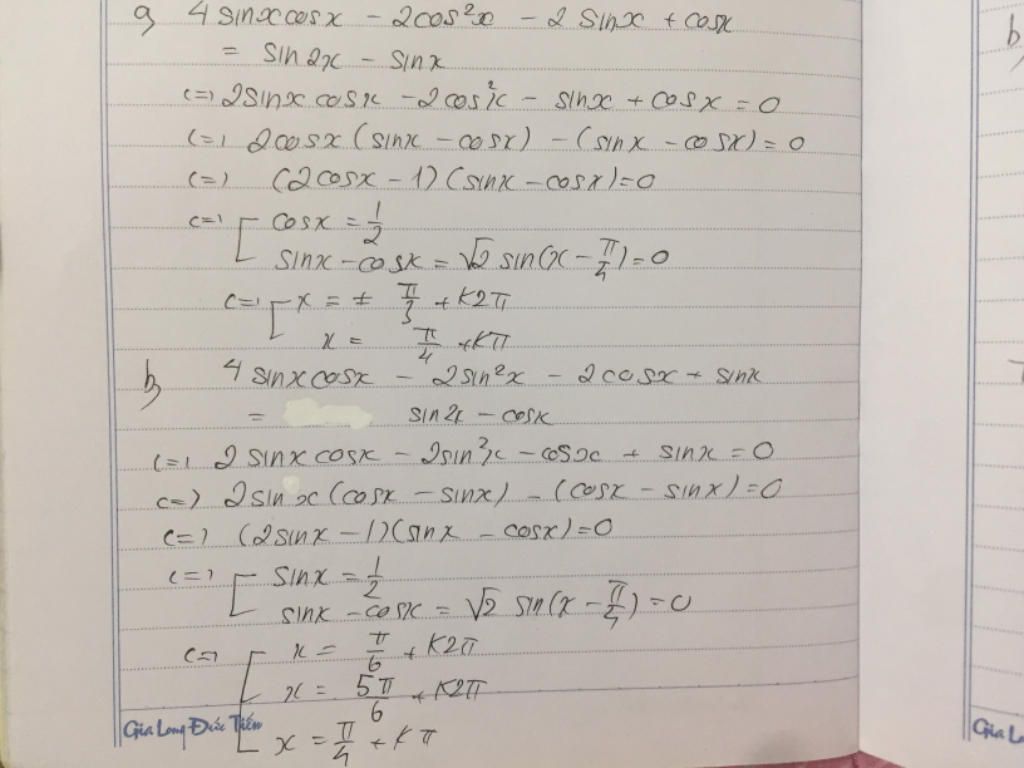 a, 4 sinxcosx - 2cos²x - 2 sinx + cosx
= sin2x - sinx
<=> 2sinx cosx - 2cos²x - sinx + cosx = 0
<=> 2cosx (sinx - cosx) - (sinx - cosx) = 0
<=> (2cosx - 1)(sinx - cosx) = 0
<=> [ cosx = 1/2
sinx - cosx = √2 sin(x - π/4) = 0
<=> [ x = ± π/3 + k2π
x = π/4 + kπ
b, 4 sinxcosx - 2sin²x - 2cosx + sinx
= sin2x - cosx
<=> 2 sinx cosx - 2sin²x - cosx + sinx = 0
<=> 2sinx (cosx - sinx) - (cosx - sinx) = 0
<=> (2sinx - 1)(sinx - cosx) = 0
<=> [ sinx = 1/2
sinx - cosx = √2 sin(x - π/4) = 0
<=> [ x = π/6 + k2π
x = 5π/6 + k2π
x = π/4 + kπ
Gia Long Đức Tiến
b,
Gia Lo